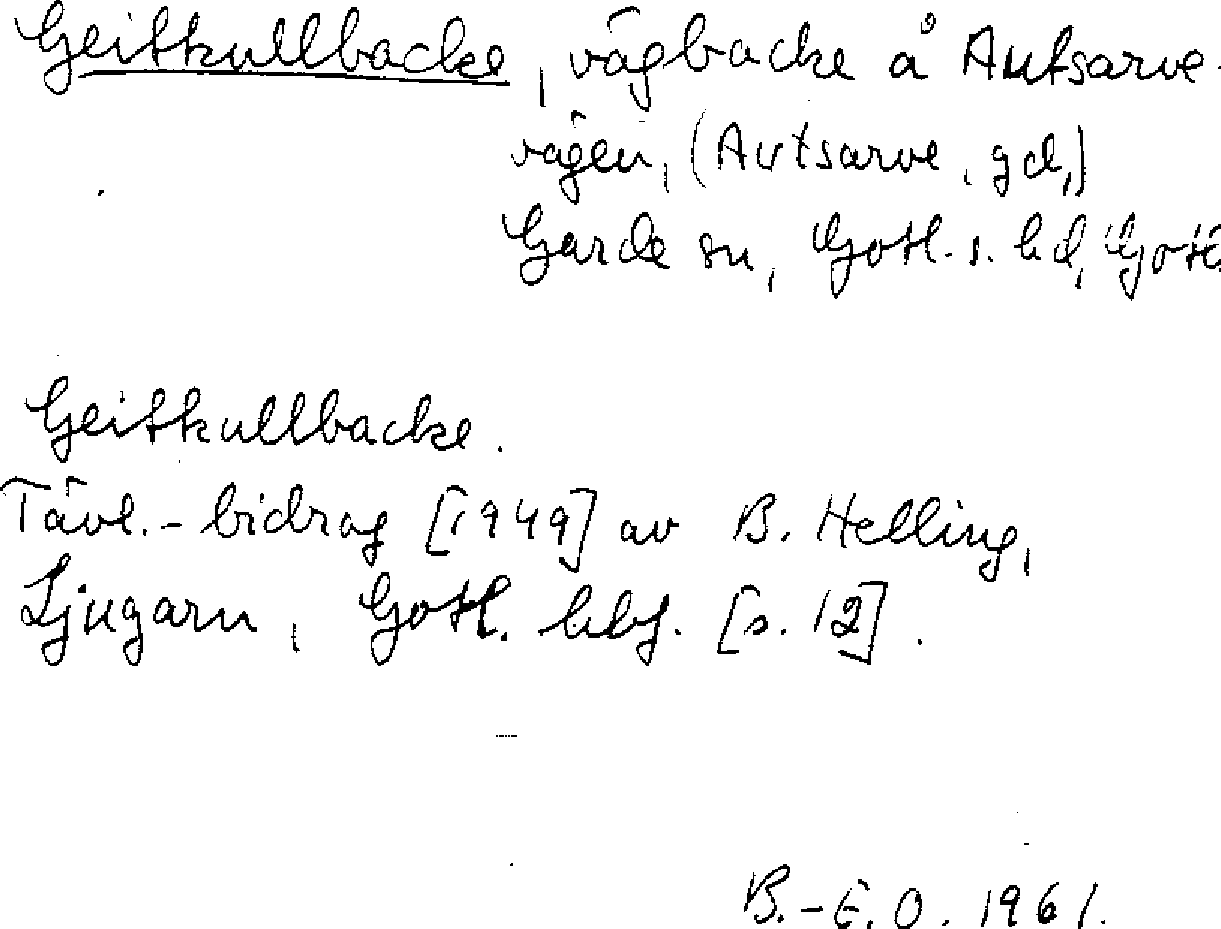 Geitkullbacke, vägbacke å Autsarve-
vägen, (Autsarve, gd,)
Garde sn, Gotl. s. hd, Gotl.
Geitkullbacke.
Tävl.-bidrag [1949] av B. Helling,
Ljugarn, Gotl. hbf. [s. 12].
B.-E.O. 1961.